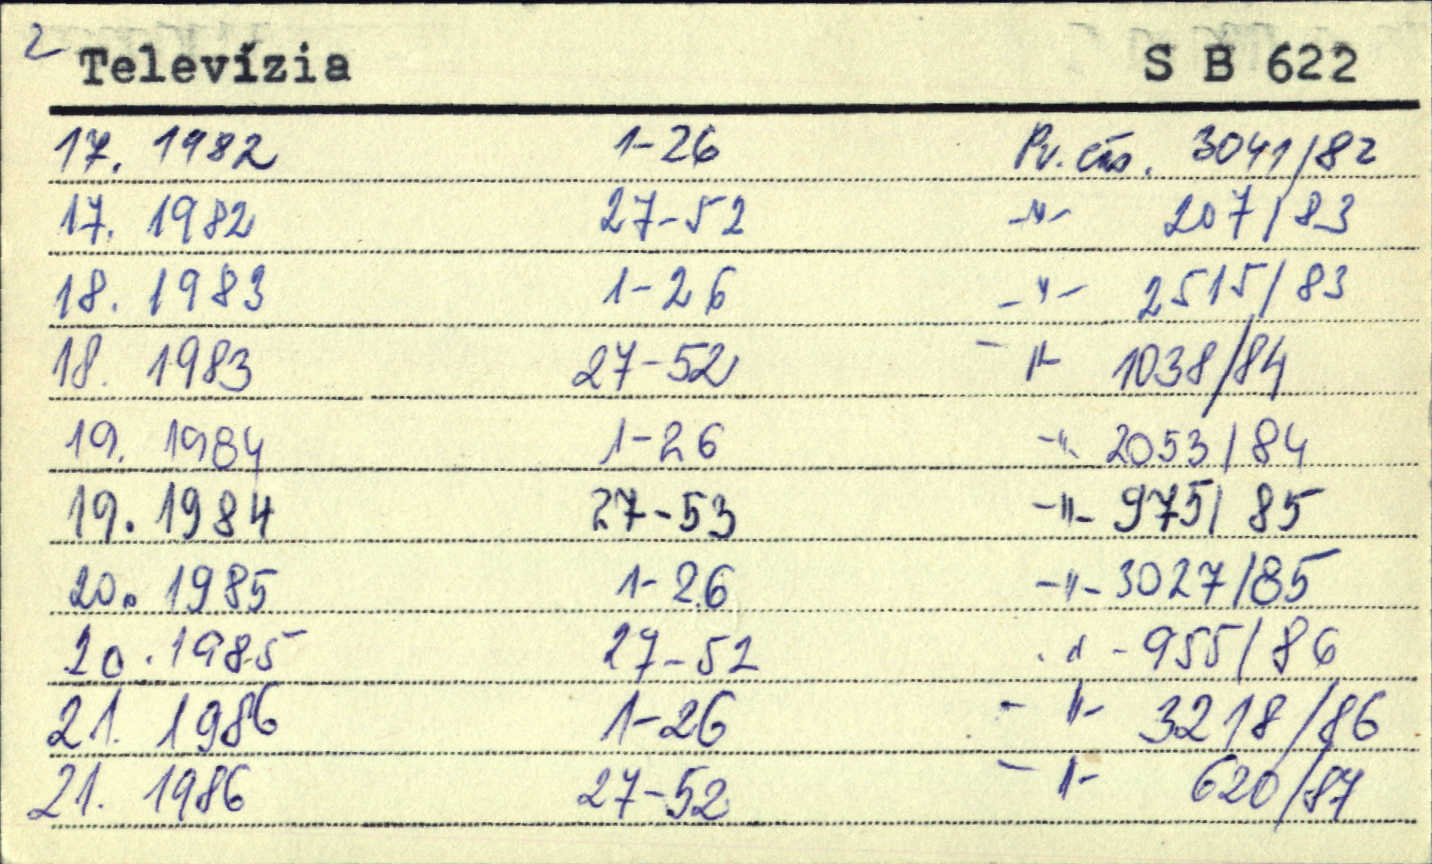 2 Televízia S B 622
17. 1982 1-26 Pr. čís. 3041/82
17. 1982 27-52 -"- 207/83
18. 1983 1-26 -"- 2515/83
18. 1983 27-52 -"- 1038/84
19. 1984 1-26 -"- 2053/84
19. 1984 27-53 -"- 975/85
20. 1985 1-26 -"- 3027/85
20. 1985 27-52 -"- 955/86
21. 1986 1-26 -"- 3218/86
21. 1986 27-52 -"- 620/87